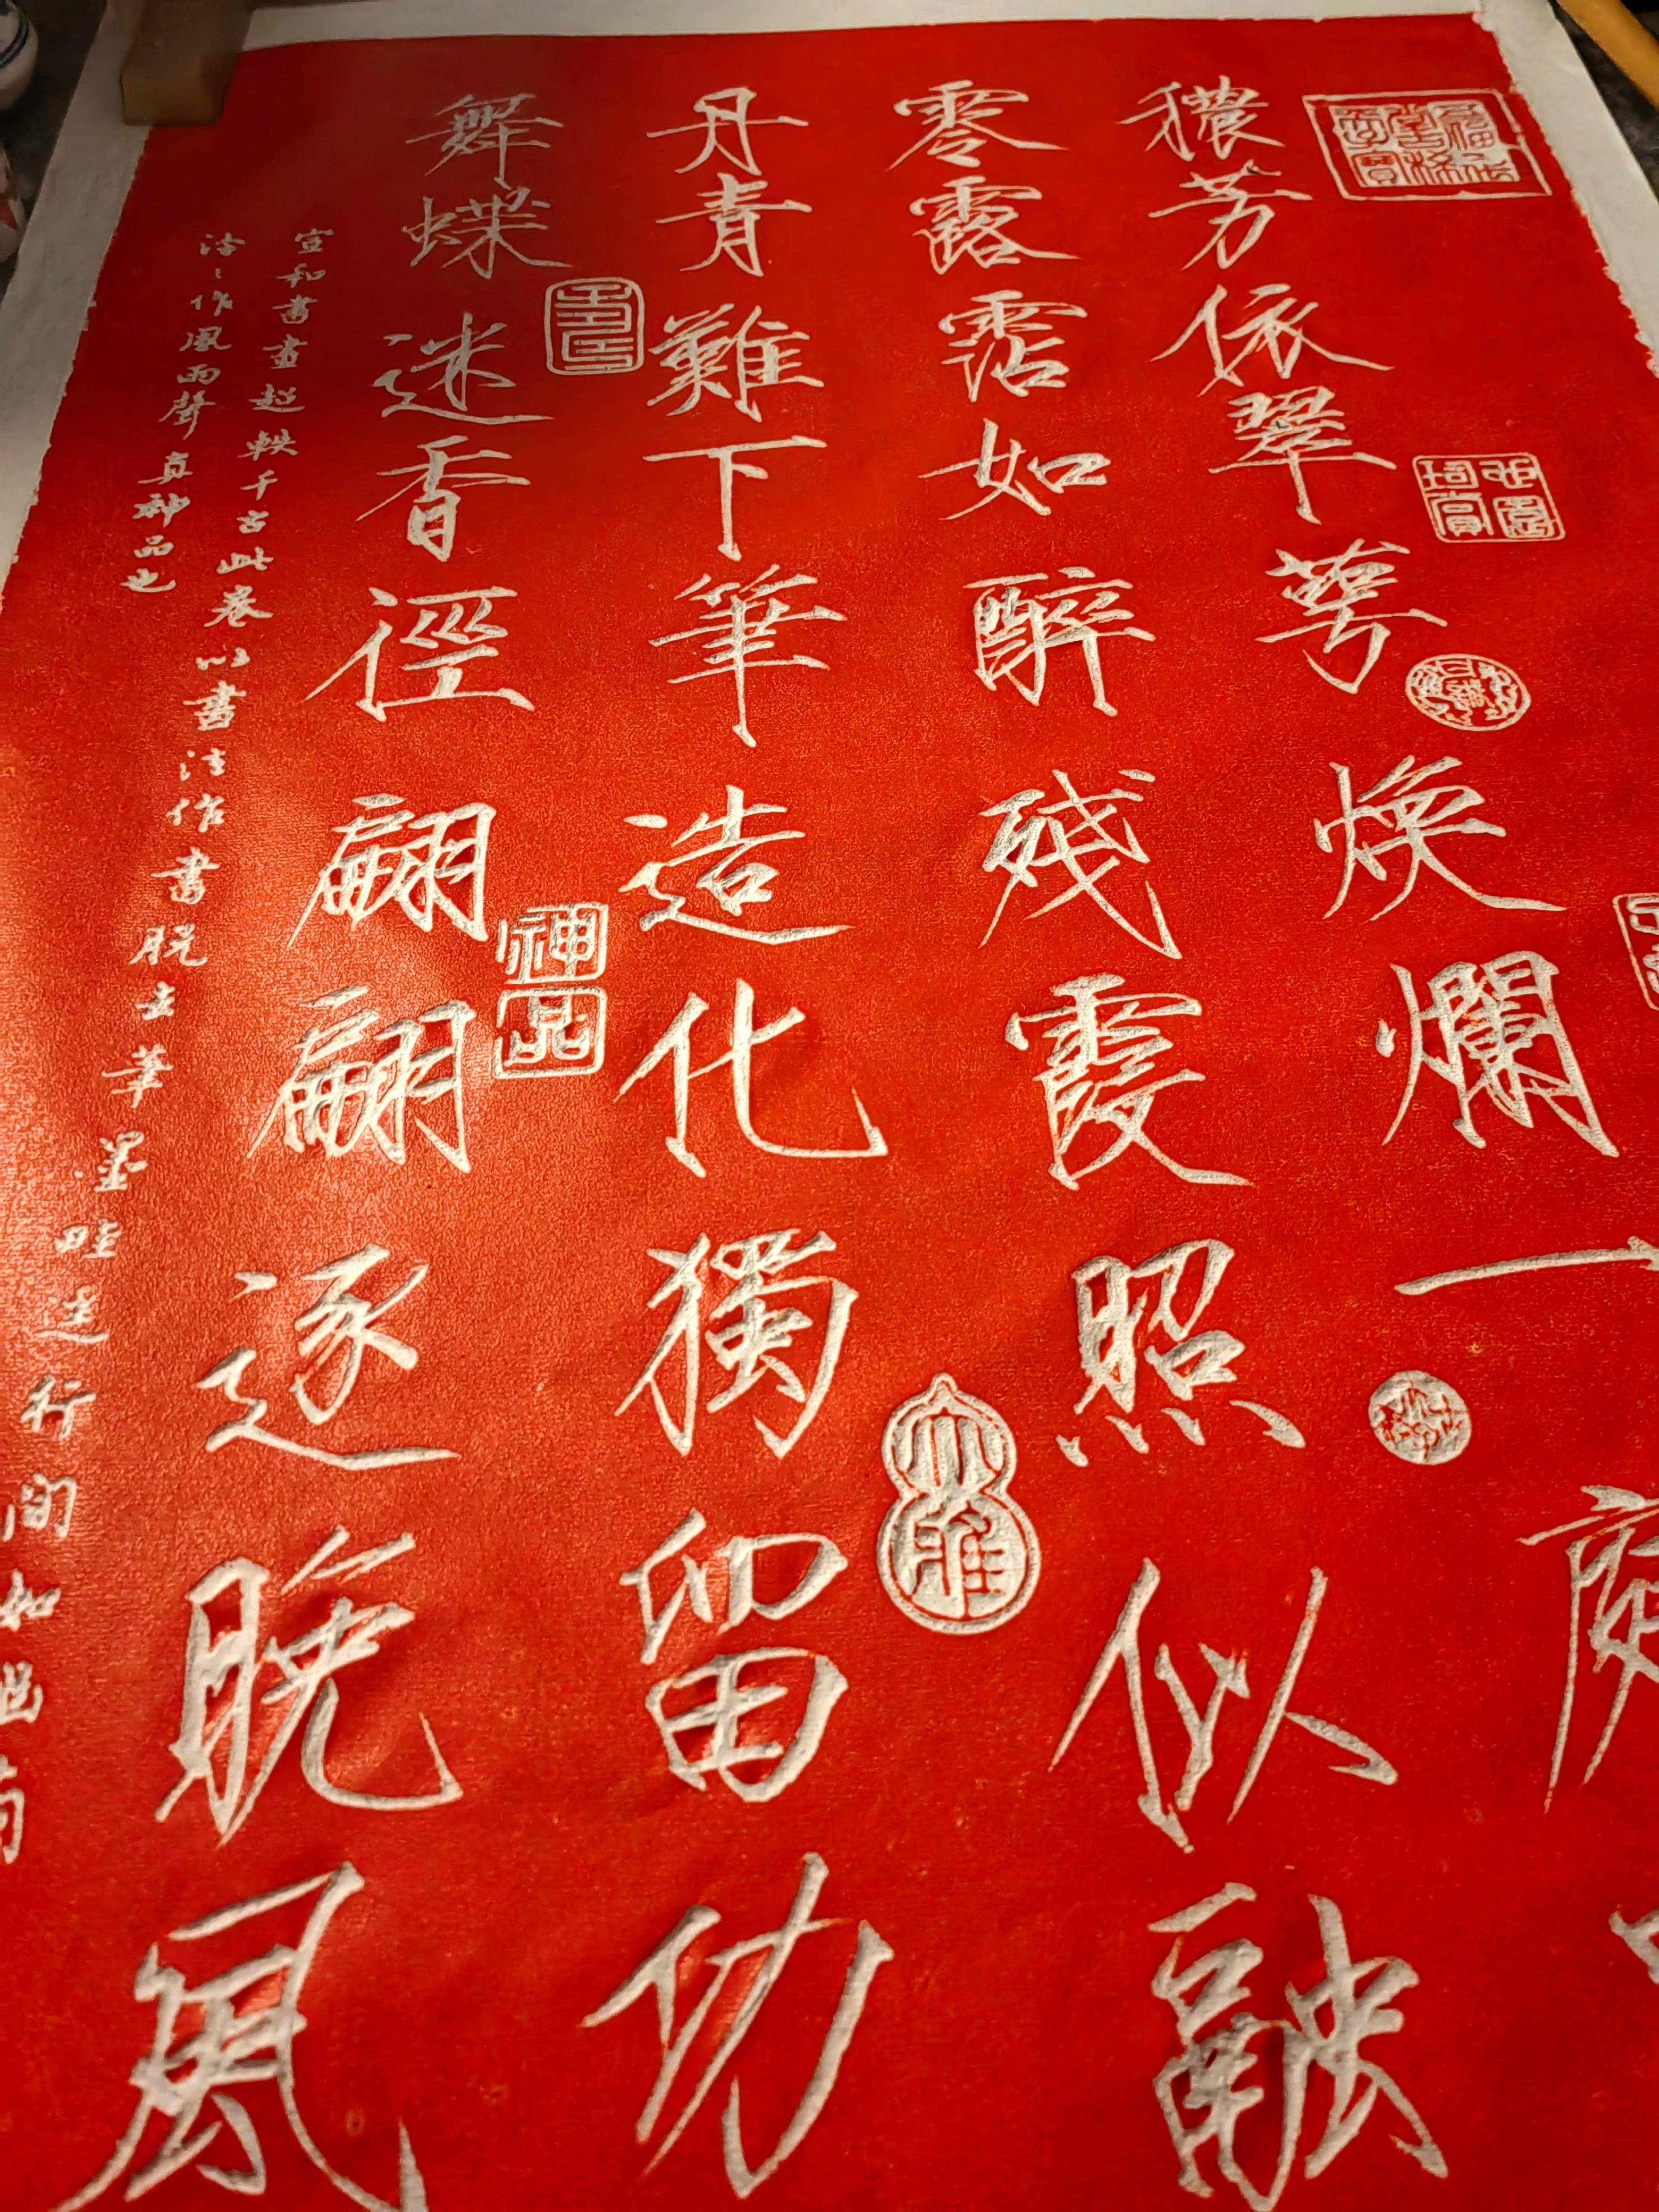 穠芳依翠萼煥爛一庭
零露霑如醉殘霞照似融
丹青難下筆造化獨留功
舞蝶迷香徑翩翩逐晚風
宣和書畫超軼千古此卷以書法作畫脫去筆墨畦逕行間如幽
洽〻作風雨聲真神品也
神品
大雅